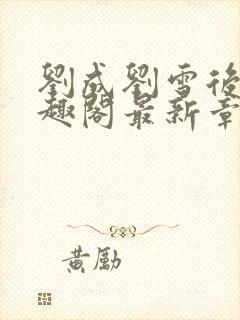 劉成劉雪後
趣閣最新章
黃勵